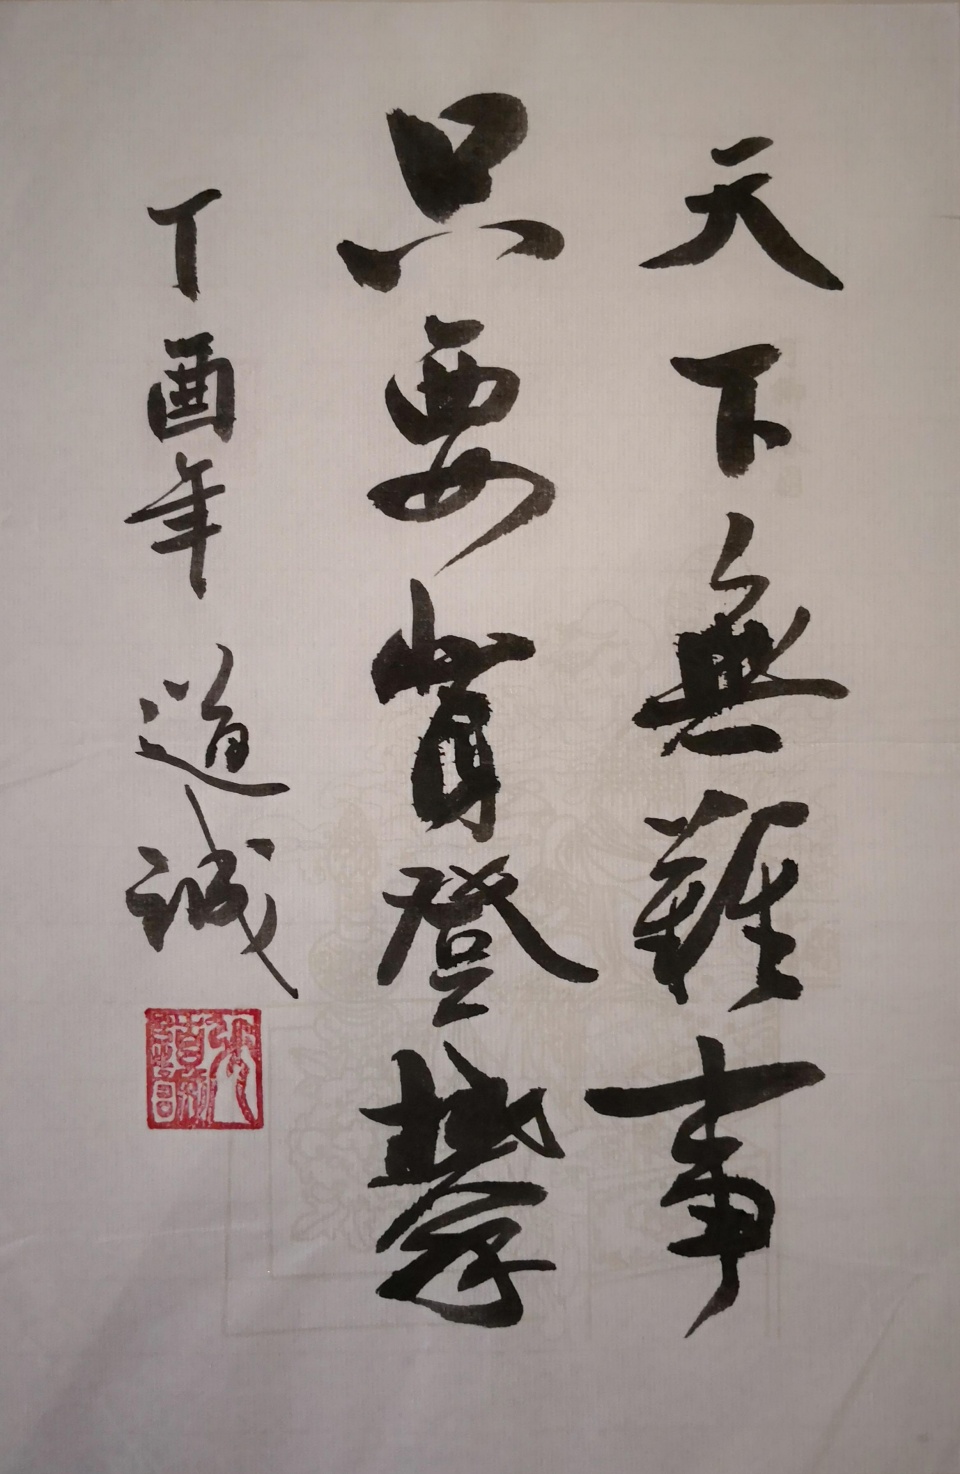 天下無難事
只要肯登攀
丁酉年 道誠